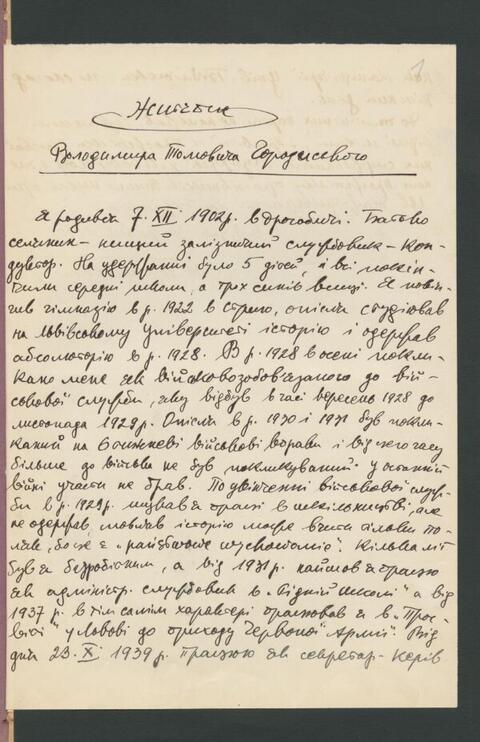 Життєпис
Володимира Томовича Городиського
Я родився 7. XII 1902 р. в Дрогобичі. Батько
селянин – нищий залізничий службовик – кон-
дуктор. На удержанні було 5 дітей, і всі покін-
чили середні школи, а трох синів вищі. Я покін-
чив гімназію в р. 1922 в Стрию, опісля студіював
на Львівському університеті історію і одержав
абсолюторію в р. 1928. В р. 1928 в осени покли-
кано мене як військовозобов'язаного до вій-
ськової служби, яку відбув в часі вересень 1928 до
листопада 1929 р. Опісля в р. 1930 і 1931 був покли-
каний на 6 тижневі військові вправи і від того часу
більше до війська не був покликуваний. У останній
війні участи не брав. По укінченні військової служ-
би в р. 1929 р. шукав я праці в шкільництві, але
не одержав, мовляв історію може вчити тільки по-
ляк, бо се є „państwowe wychowanie". Кілька літ
був я безробітним, а від 1931 р. найшов я працю
як адміністр. службовик в „Рідній Школі" а від
1937 р. в тім самім характері працював я в „Прос-
віті" у Львові до приходу Червоної Армії. Від
дня 23. X. 1939 р. працюю як секретар-керів